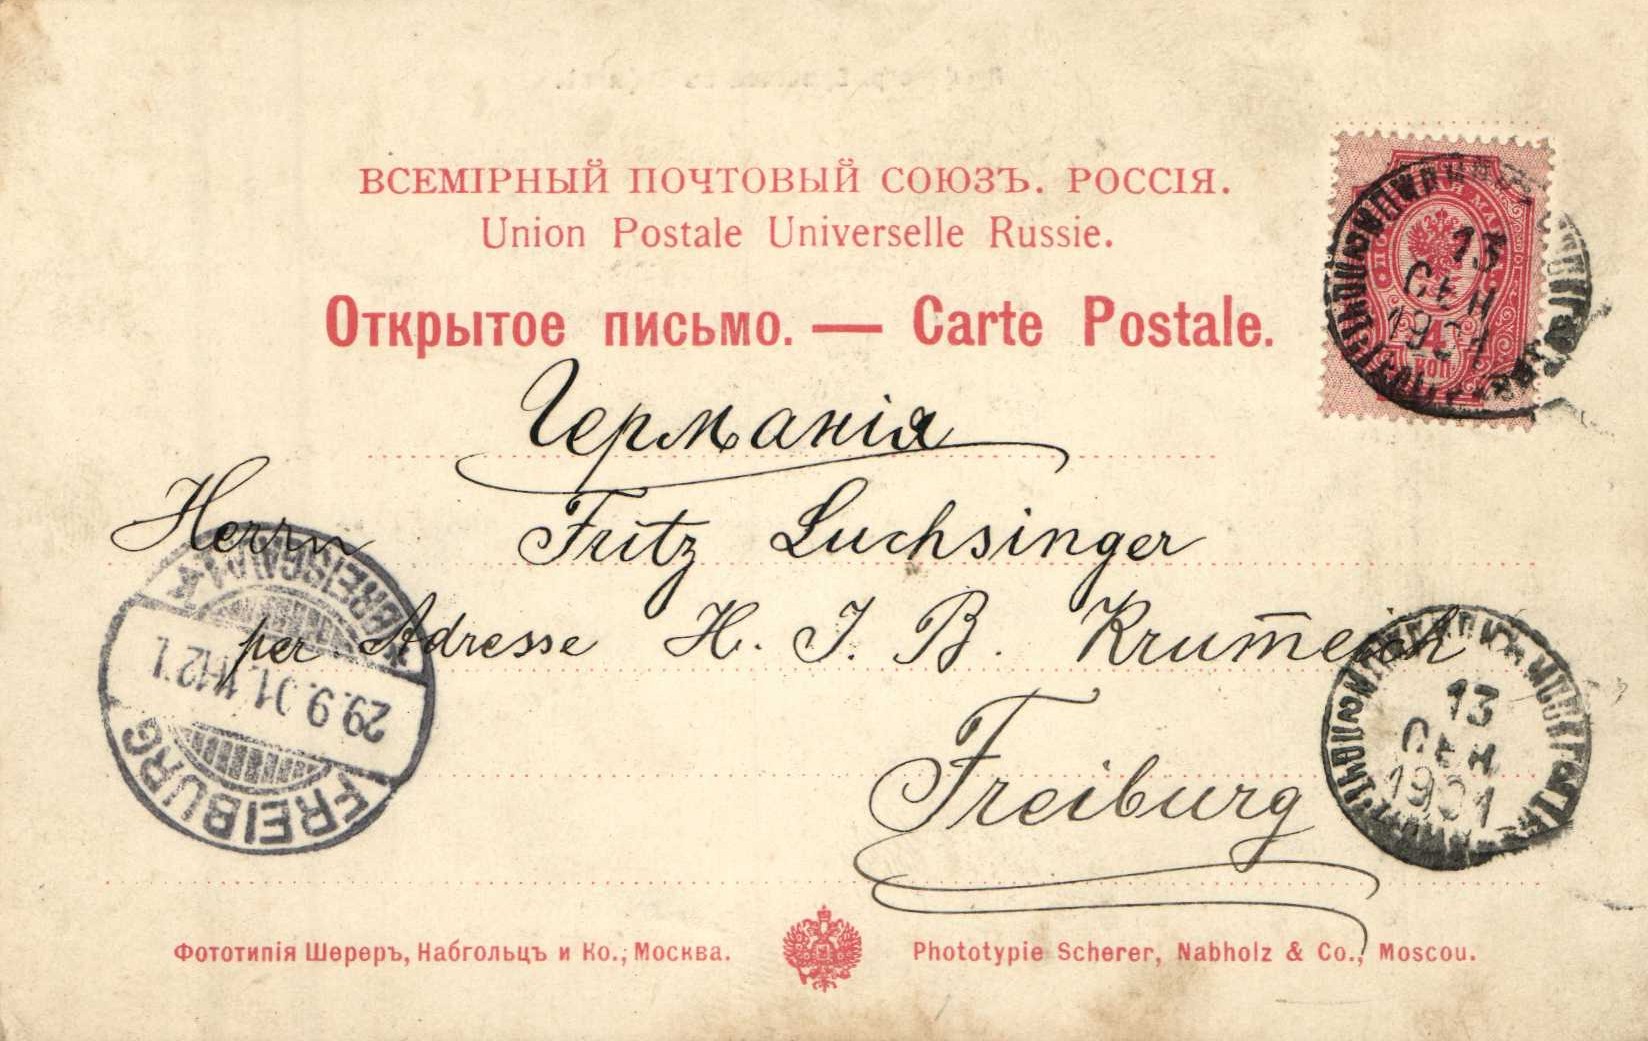 ВСЕМІРНЫЙ ПОЧТОВЫЙ СОЮЗЪ. РОССІЯ.
Union Postale Universelle Russie.
Открытое письмо. — Carte Postale.
13
СЕН
1901
4
КОП
Германія
Herrn Fritz Luchsinger
per Adresse H. J. B. Krum̅eich
Freiburg
FREIBURG
29.9.01.11-12 V.
13
СЕН
1901
Фототипія Шереръ, Набгольцъ и Ко., Москва.
Phototypie Scherer, Nabholz & Co., Moscou.